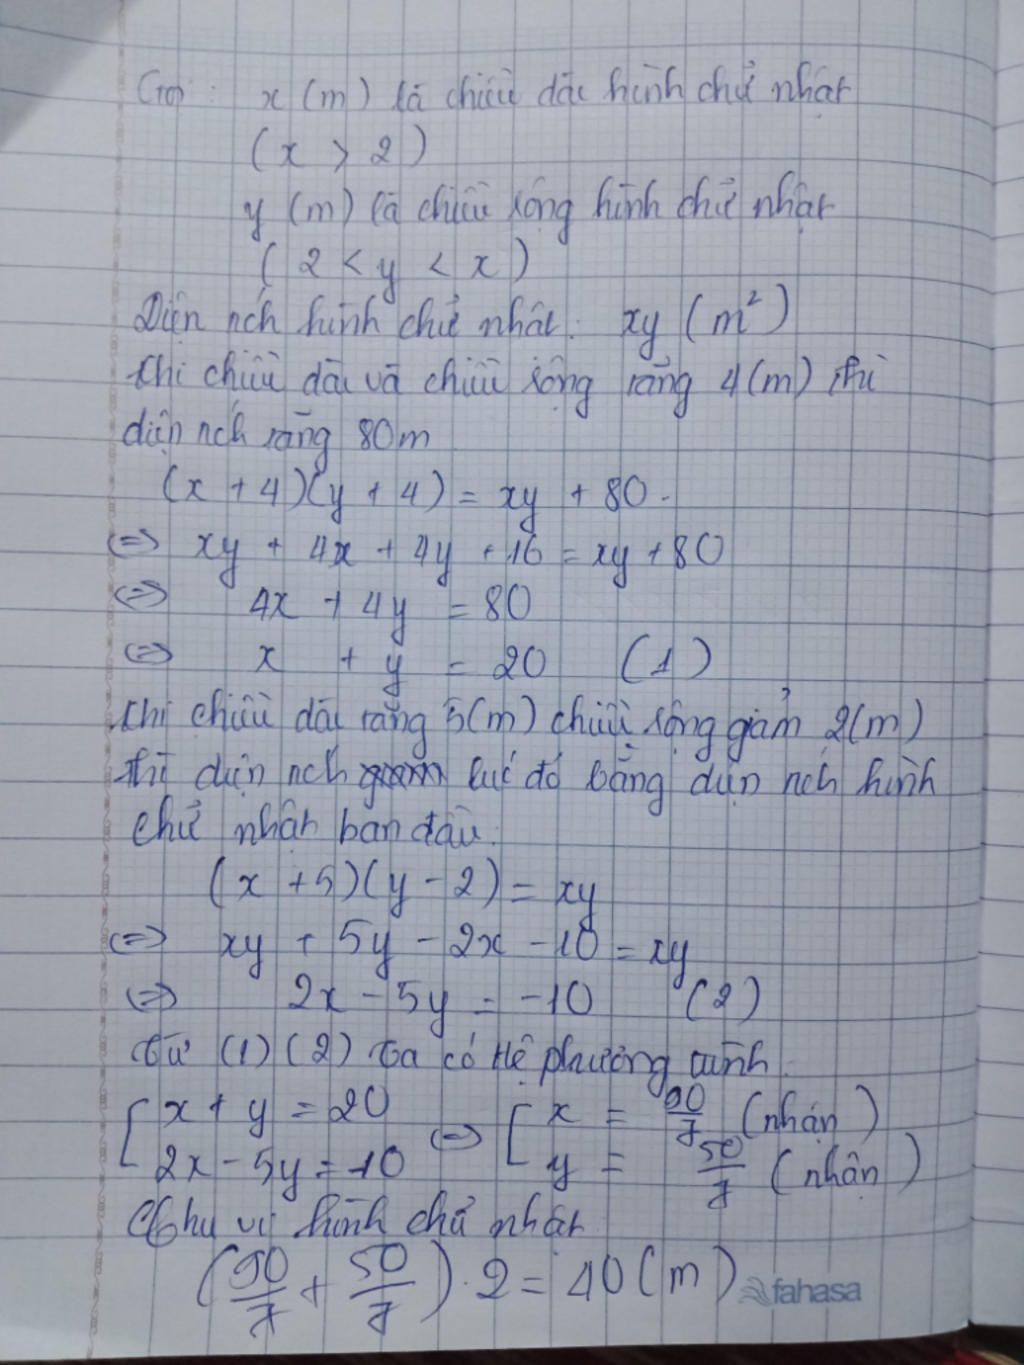 Gọi: x (m) là chiều dài hình chữ nhật
(x > 2)
y (m) là chiều rộng hình chữ nhật
(2 < y < x)
Diện tích hình chữ nhật: xy (m²)
Khi chiều dài và chiều rộng tăng 4(m) thì
diện tích tăng 80m
(x + 4)(y + 4) = xy + 80.
<=> xy + 4x + 4y + 16 = xy + 80
<=> 4x + 4y = 80
<=> x + y = 20 (1)
Khi chiều dài tăng 5(m) chiều rộng giảm 2(m)
thì diện tích lúc đó bằng diện tích hình
chữ nhật ban đầu.
(x + 5)(y - 2) = xy
<=> xy + 5y - 2x - 10 = xy
<=> 2x - 5y = -10 (2)
Từ (1) (2) ta có Hệ phương trình.
[ x + y = 20 <=> [ x = 90/7 (nhận)
2x - 5y = -10 y = 50/7 (nhận)
Chu vi hình chữ nhật.
(90/7 + 50/7) . 2 = 40 (m)
fahasa